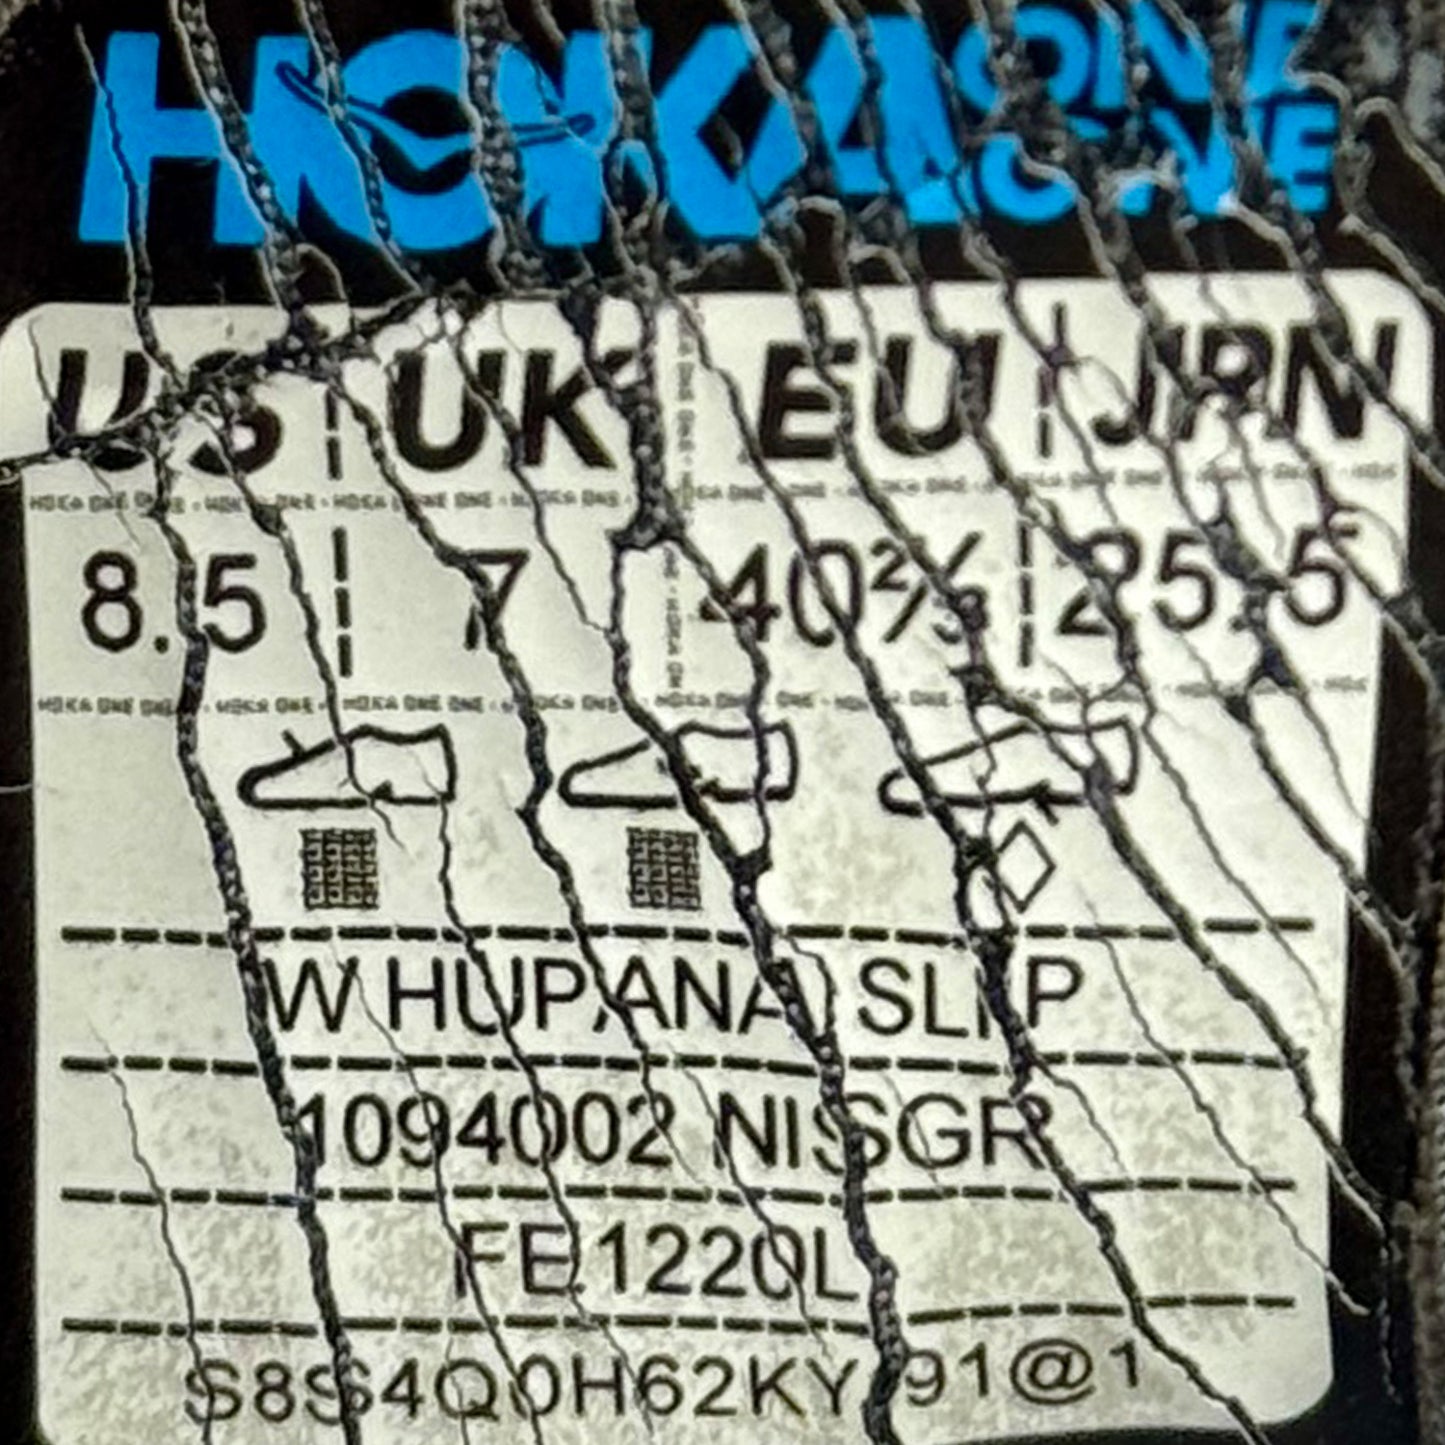 HOKA ONE ONE
US UK EU JPN
8.5 7 40⅔ 25.5
W HUPANA SLIP
1094002 NISSGR
FE1220L
91@1